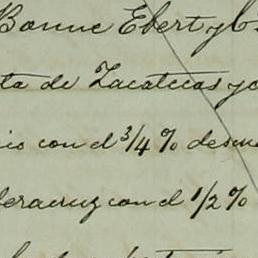 Bonne Ebert y C
ta de Zacatecas y c
io con el 3/4 % descu
Veracruz con el 1/2 %